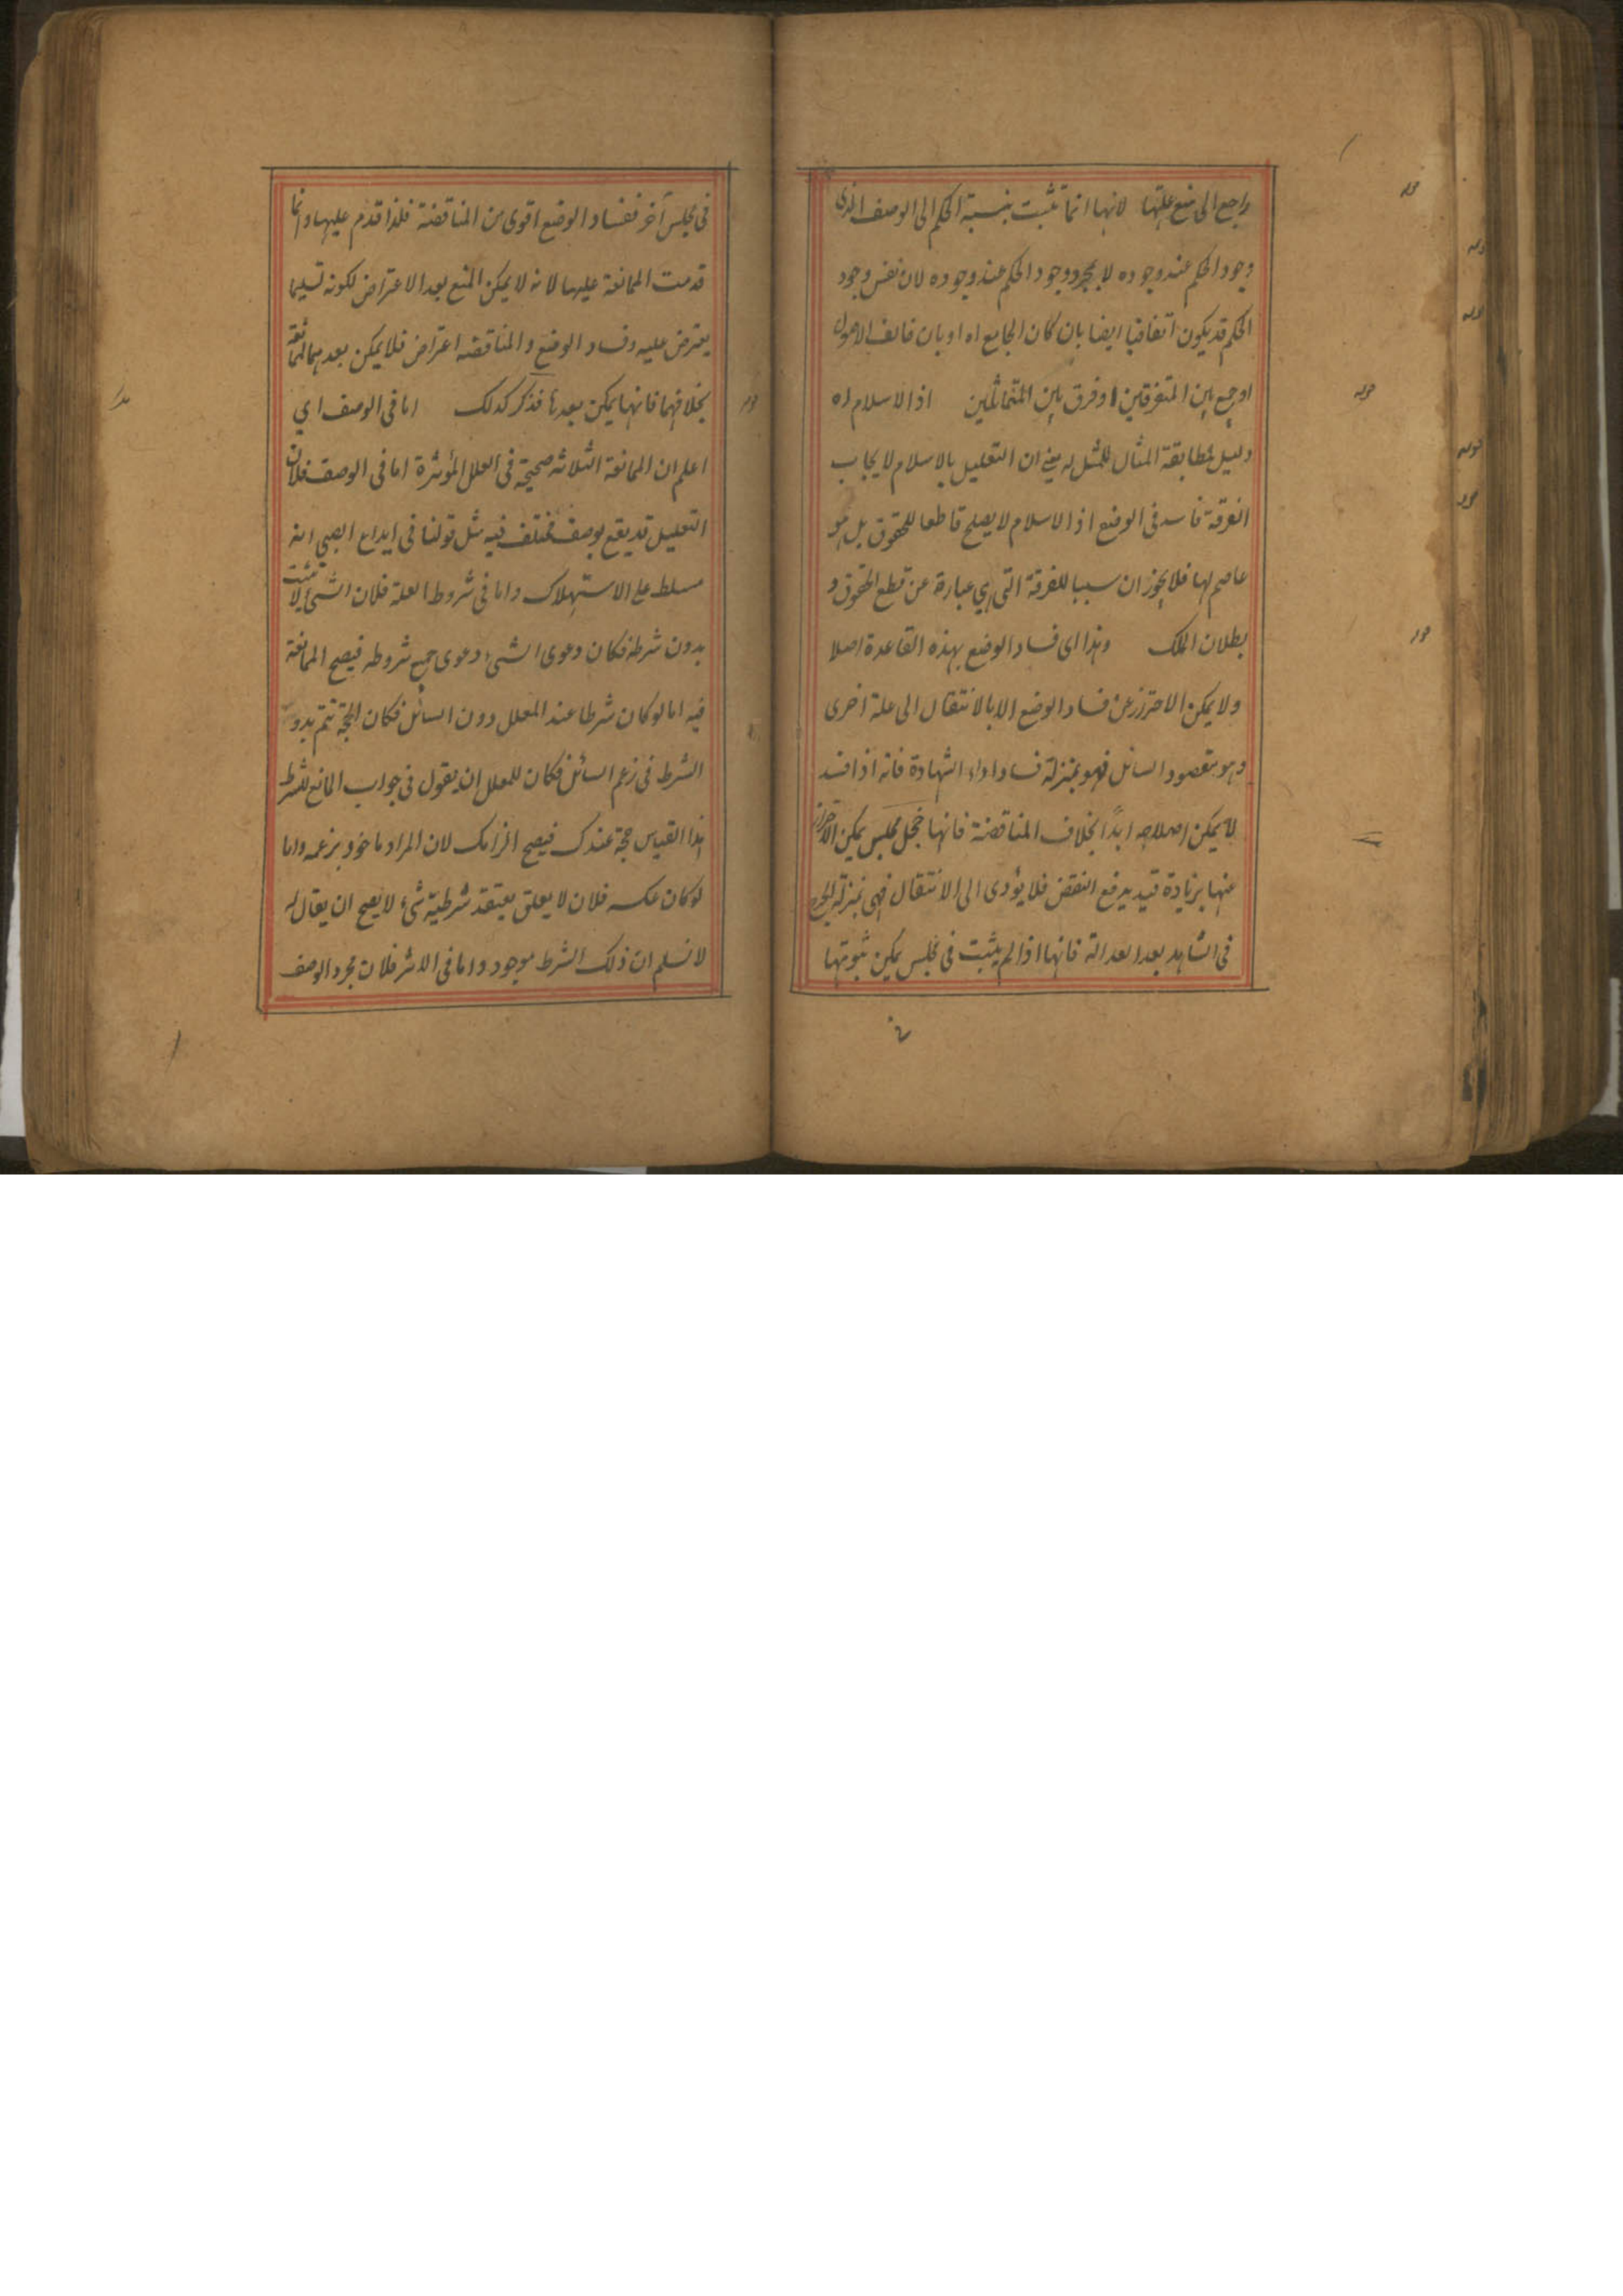 راجع الى منع علتها لانها انما تثبت بنسبة الحكم الى الوصف الذى
وجود الحكم عند وجوده لا بمجرد وجود الحكم عند وجوده لان نفس وجود
الحكم قد يكون اتفاقيا ايضا بان كان الجامع اه او بان خالف الاصول
او جمع بين المتفرقين او فرق بين المتماثلين اذ الاسلام اه
دليل لمطابقة المثال للمثل له يعنى ان التعليل بالاسلام لايجاب
الفرقة فاسد فى الوضع اذ الاسلام لا يصلح قاطعا للحقوق بل هو
عاصم لها فلا يجوز ان سببا للفرقة التى هى عبارة عن قطع الحقوق و
بطلان الملك وهذا اى فساد الوضع بهذه القاعدة اصلا
ولا يمكن الاحترز عن فساد الوضع الا بالانتقال الى علة اخرى
وهو مقصود السائل فهو بمنزلة فساد اداء الشهادة فانه اذا فسد
لا يمكن اصلاحه ابدًا بخلاف المناقضة فانها خجل مجلس يمكن الاحتراز
عنها بزيادة قيد يرفع النقض فلا يؤدى الى الانتقال فهى بمنزلة الجرح
فى الشاهد بعد العدالة فانها اذا لم يثبت فى مجلس يمكن ثبوتها
فى مجلس آخر ففساد الوضع اقوى من المناقضة فلذا قدم عليها وانما
قدمت الممانعة عليها لانه لا يمكن المنع بعد الاعتراض لكونه تسليما
يعترض عليه وفساد الوضع والمناقضة اعتراض فلا يمكن بعدهما الممانعة
بخلافهما فانهما يمكن بعدها فذكر كذلك اما فى الوصف اي
اعلم ان الممانعة الثلاثة صحيحة فى العلل المؤثرة اما فى الوصف فلان
التعليل قد يقع بوصف مختلف فيه مثل قولنا فى ايداع الصبي انه
مسلط على الاستهلاك واما فى شروط العلة فلان الشئ لا يثبت
بدون شرطه فكان دعوى الشئ دعوى جميع شروطه فيصح الممانعة
فيه اما لو كان شرطا عند المعلل دون السائل فكان الحجة تتم بدون
الشرط فى زعم السائل فكان للمعلل ان يقول فى جواب المانع للشرط
هذا القياس حجة عندك فيصح الزامك لان المراد ماخوذ بزعمه واما
لو كان عكسه فلان لا يعلق يعتقد شرطية شئ لا يصح ان يقال له
لا نسلم ان ذلك الشرط موجود واما فى الاثر فلان مجرد الوصف